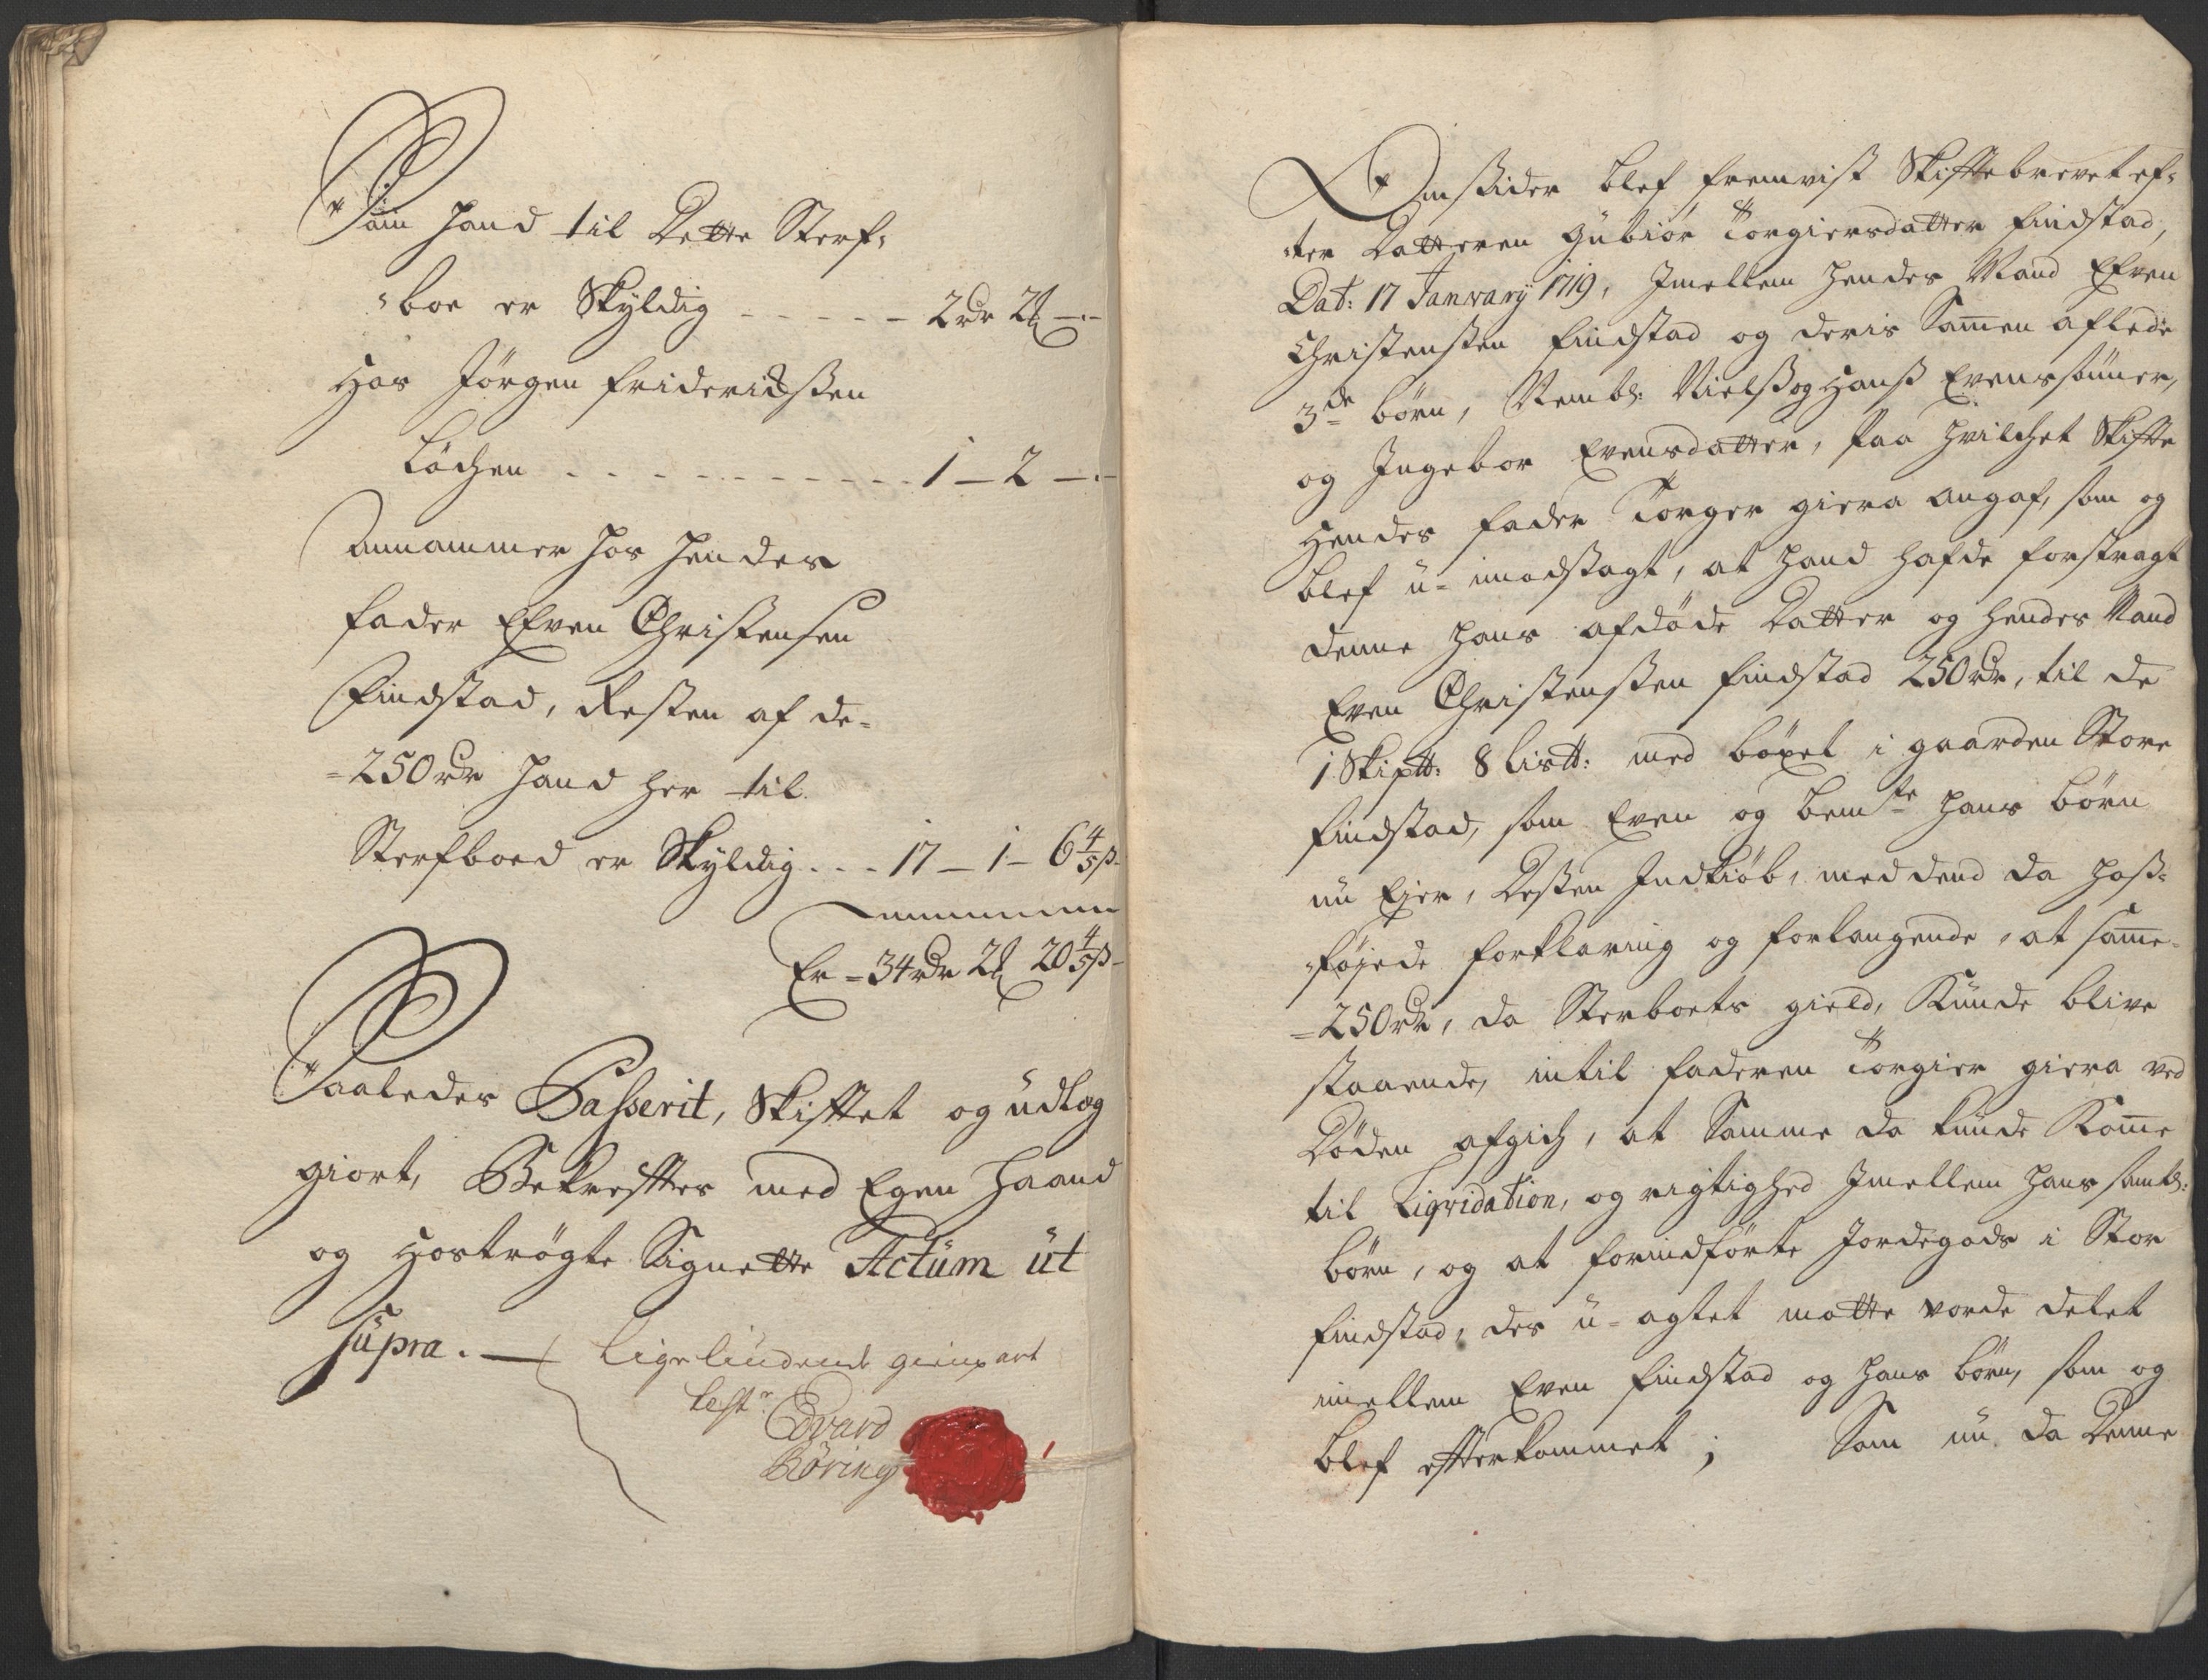 Som hand til Dette Sterf-
boe er Skyldig - - - - - 2 rdr 2 ꝶ -.-
Hos Jørgen Friderichssen
Løchen . . . . . . . . . . 1 - 2 -.-
Annammer hos hendes
fader Efven Christensen
Findstad, Resten af de-
=250 rdr hand her til
Sterfboed er Skyldig . . . 17 - 1 - 6 4/5 ß
Er = 34 rdr 2 ꝶ 20 4/5 ß
Saaledes Passerit, Skiftet og udlog
giort, Bekreftes med Egen Haand
og hostrøgte Signette Actum ut
supra. — Ligelÿdende gienpart
test:
Edvard
Røring
Omsider blef fremvist Skiftebrevet ef-
ter Datteren Gubiør Torgiersdatter Findstad,
Dat: 17 Janvarÿ 1719, Imellem hendes Mand Efven
Christensen Findstad og deris Sam̄en aflede
3de børn, Nembl: Nielß og Hanß Evenssønner,
og Ingebor Evensdatter, Paa hvilchet Skifte
hendes fader Torger giera angaf, som og
blef u-imodsagt, at hand hafde forstragt
denne hans afdøde Datter og hendes Mand
Even Christensen Findstad 250 rdr, til de
1 Skiptt: 8 listt: med bøxel i gaarden Store
Findstad, som Even og bemte hans børn
nu Ejer, Dessen Indkiøb, med dend da hoß-
føjede forklaring og forlangende, at sam̄e-
=250 rdr, da Sterboets gield, Kunde blive
staaende, intil faderen Torgier giera ved
Døden afgich, at Samme da kunde Kom̄e
til Liqvidation, og rigtighed Imellem hans samtl:
børn, og at forindførte Jordegods i Stor
Findstad, des u-agtet motte vorde delet
imellem Even Findstad og hans børn, som og
blef efterkommet; Som nu da Denne